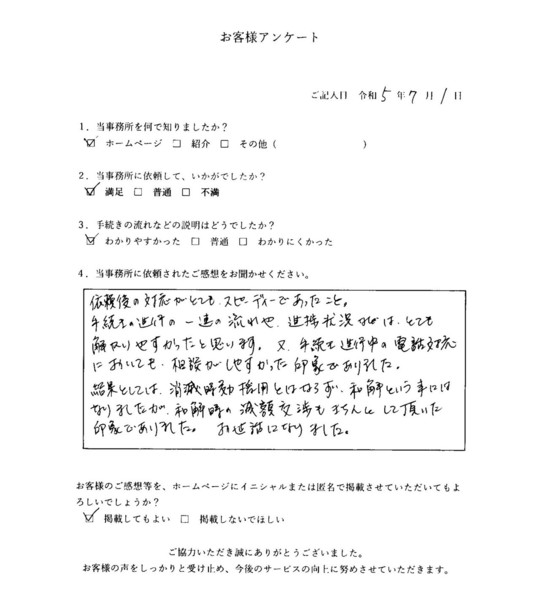 お客様アンケート
ご記入日 令和 5 年 7 月 1 日
1．当事務所を何で知りましたか？
☑ ホームページ □ 紹介 □ その他（ ）
2．当事務所に依頼して、いかがでしたか？
☑ 満足 □ 普通 □ 不満
3．手続きの流れなどの説明はどうでしたか？
☑ わかりやすかった □ 普通 □ わかりにくかった
4．当事務所に依頼されたご感想をお聞かせください。
依頼後の対応がとても、スピーディーであったこと。
手続きの進行の一連の流れや、進捗状況などは、とても
解かりやすかったと思います。又、手続き進行中の電話対応
においても、相談がしやすかった印象でありました。
結果としては、消滅時効援用とはならず、和解という事には
なりましたが、和解時の減額交渉もきちんとして頂いた
印象でありました。 お世話になりました。
お客様のご感想等を、ホームページにイニシャルまたは匿名で掲載させていただいてもよ
ろしいでしょうか？
☑ 掲載してもよい □ 掲載しないでほしい
ご協力いただき誠にありがとうございました。
お客様の声をしっかりと受け止め、今後のサービスの向上に努めさせていただきます。